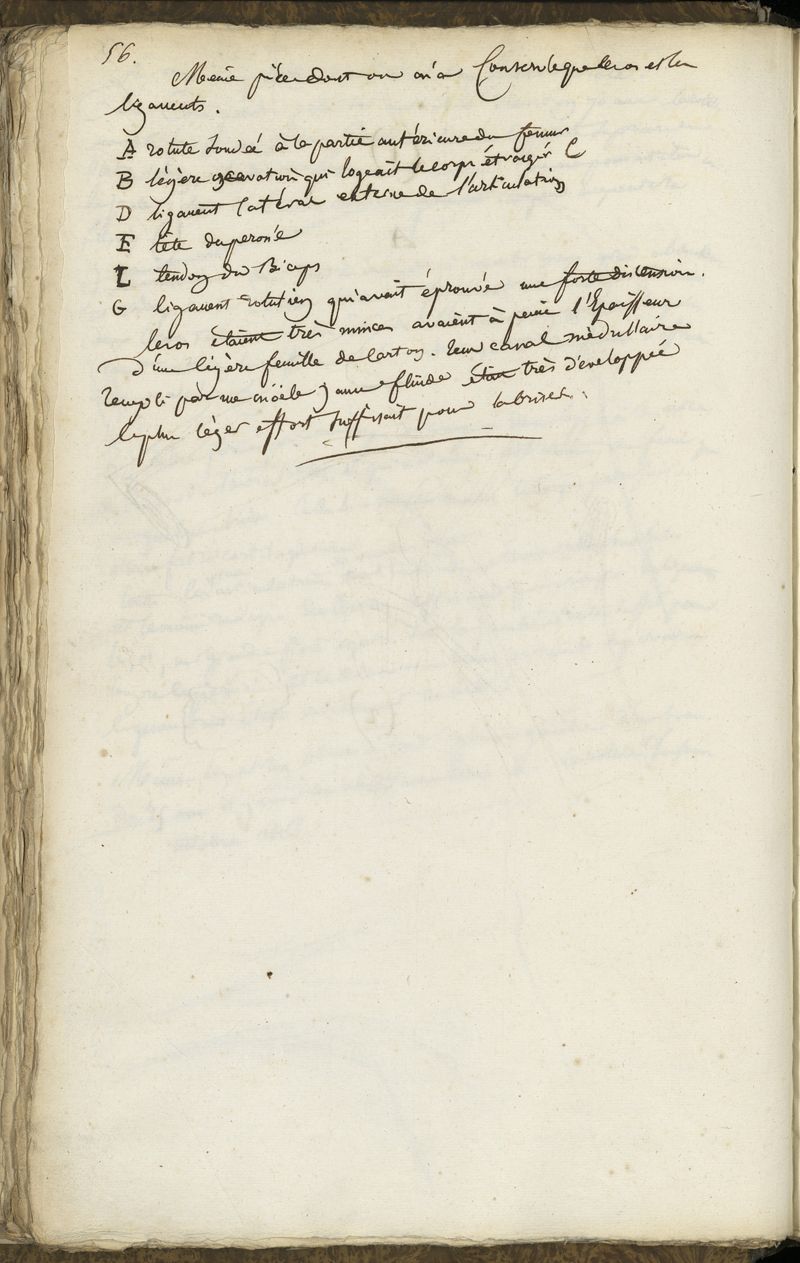 56.
Même pièce dont on n'a Conservé que les os et les
ligaments.
A rotule soudée à la partie antérieure du femur
B légère excavation qui logeait le corps étranger C
D ligament latéral externe de l'articulation
E tête du peroné
L tendon du Biceps
G ligament rotulien qui avait éprouvé une forte distension.
les os étaient très minces avaient à peine l'Epaisseur
d'une légère feuille de carton. leur canal médullaire
rempli par une moële jaune fluide était très développé
le plus léger effort suffisait pour les briser.